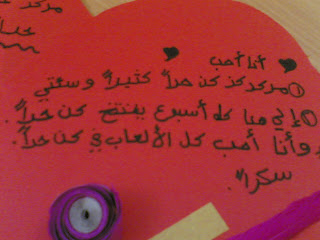 مركز
أنا أحب
① مركز كن حداً كثيراً وسعتي
② إلي ميا كل أسبوع بفتتح كن حداً.
وأنا أحب كل الألعاب في كن حداً.
سكراً.